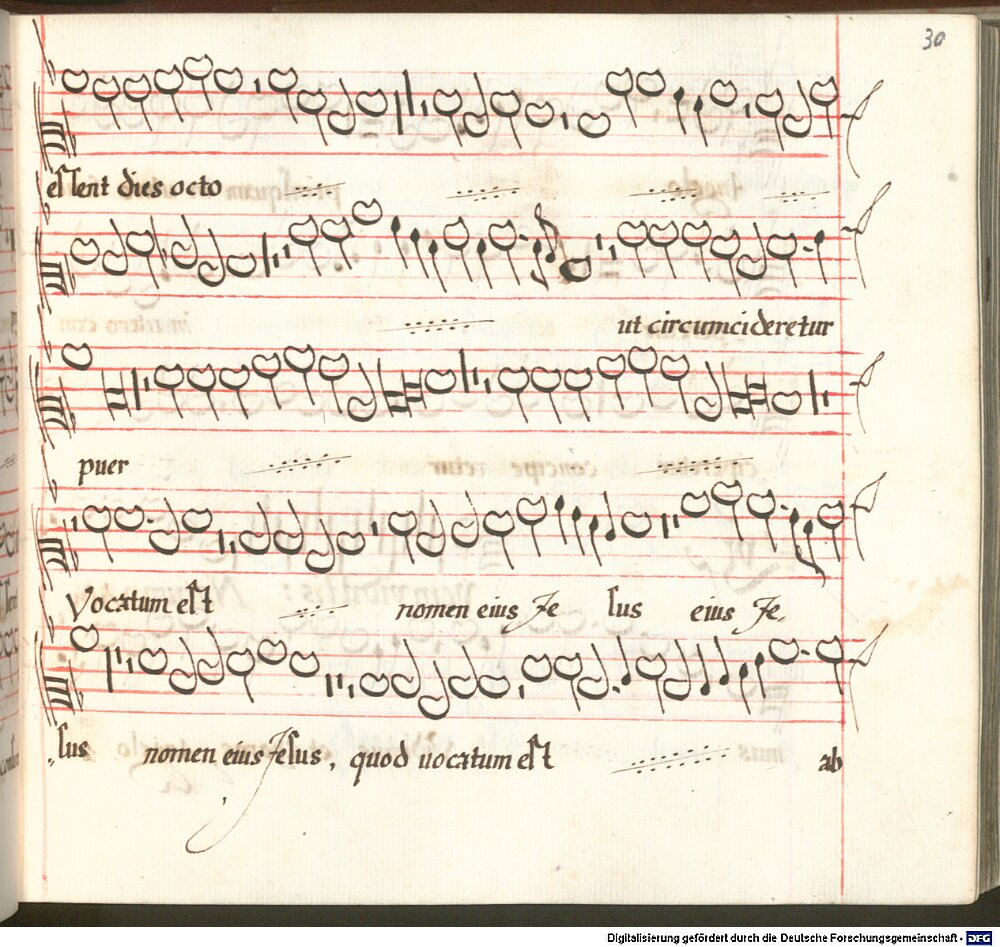 30
essent dies octo
ut circumcideretur
puer
Vocatum est nomen eius Je sus eius Je,
,,sus nomen eius Jesus, quod uocatum est ab
Digitalisierung gefördert durch die Deutsche Forschungsgemeinschaft - DFG